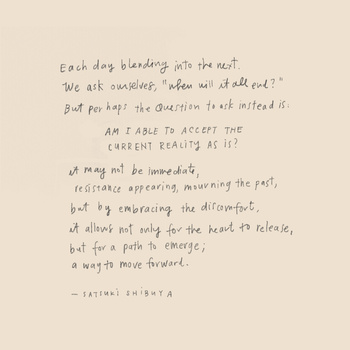 Each day blending into the next.
We ask ourselves, "when will it all end?"
But perhaps the Question to ask instead is:
AM I ABLE TO ACCEPT THE
CURRENT REALITY AS IS?
it may not be immediate,
resistance appearing, mourning the past,
but by embracing the discomfort,
it allows not only for the heart to release,
but for a path to emerge;
a way to move forward.
— SATSUKI SHIBUYA